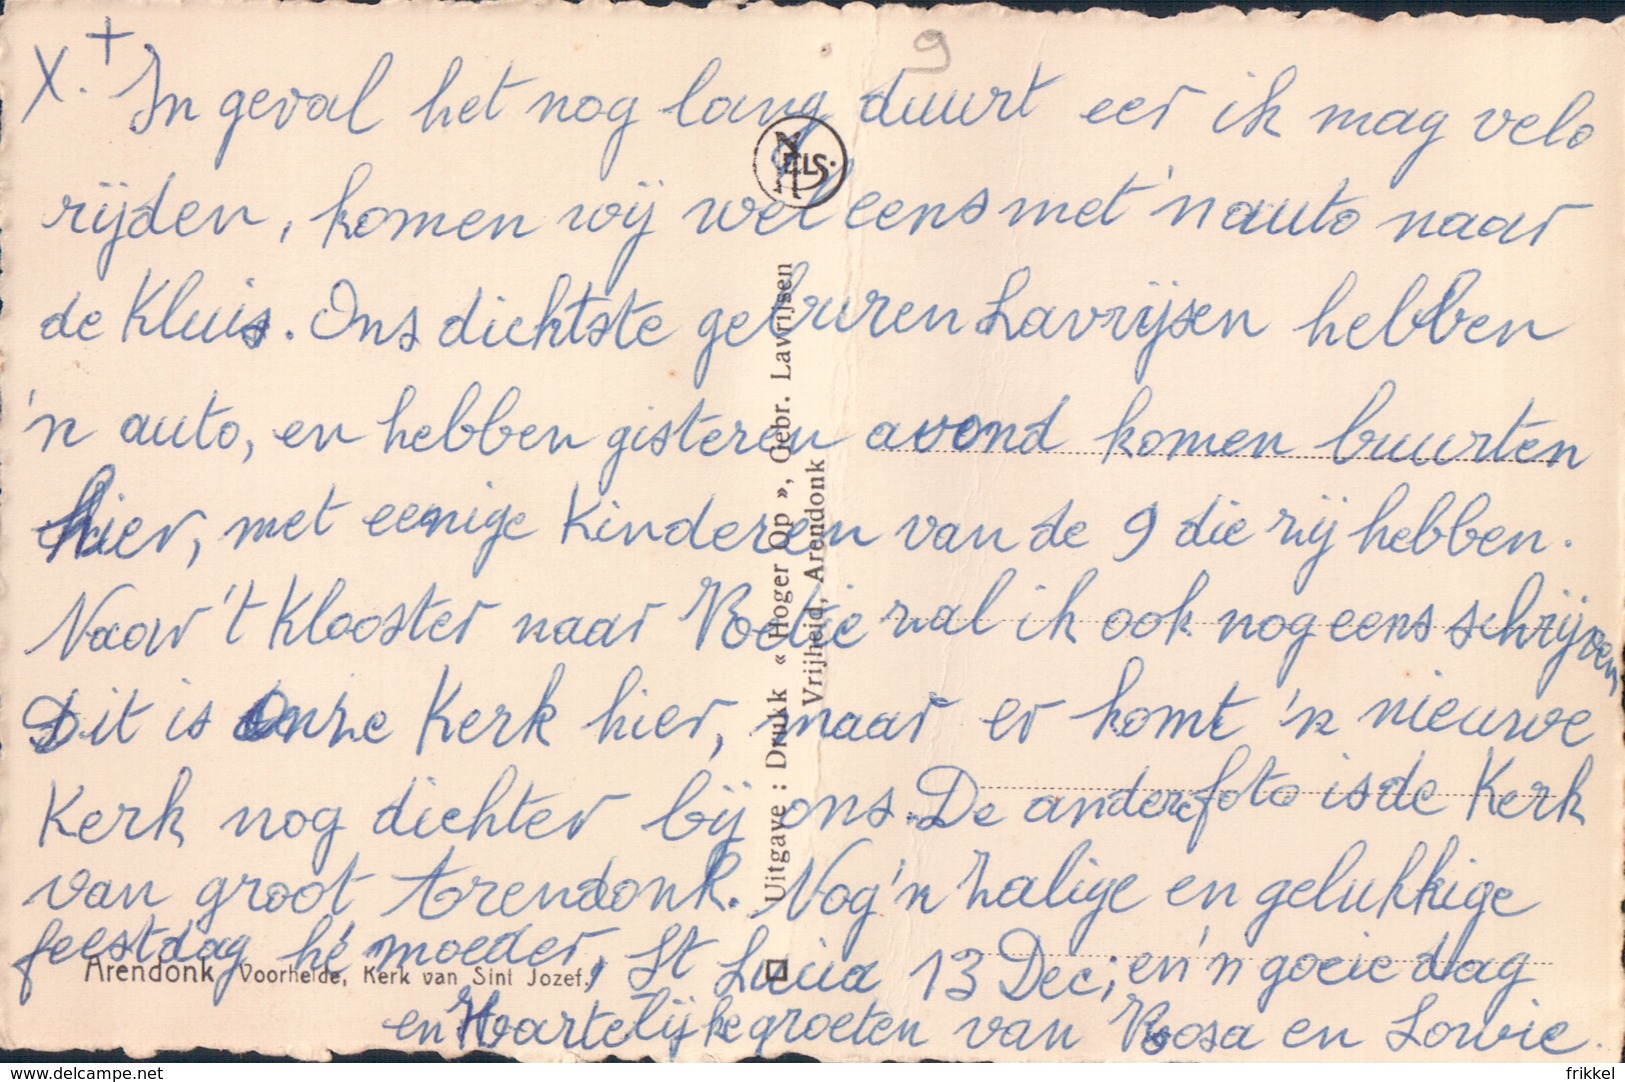 9
X. + In geval het nog lang duurt eer ik mag velo
rijden, komen wij wel eens met 'n auto naar
de Kluis. Ons dichtste geburen Lavrijsen hebben
'n auto, en hebben gisteren avond komen buurten
hier, met eenige Kinderen van de 9 die zij hebben.
Naar 't Klooster naar zal ik ook nog eens schrijven
Dit is Onze Kerk hier, maar er komt 'n nieuwe
Kerk nog dichter bij ons. De andere foto is de Kerk
van groot Arendonk. Nog 'n zalige en gelukkige
feestdag hé moeder, St Lucia 13 Dec; en 'n goeie dag
en Hartelijke groeten van Rosa en Lowie.
NELS.
Uitgave : Drukk « Hoger Op », Gebr. Lavrijsen
Vrijheid, Arendonk
Arendonk Voorheide, Kerk van Sint Jozef.
delcampe.net
frikkel